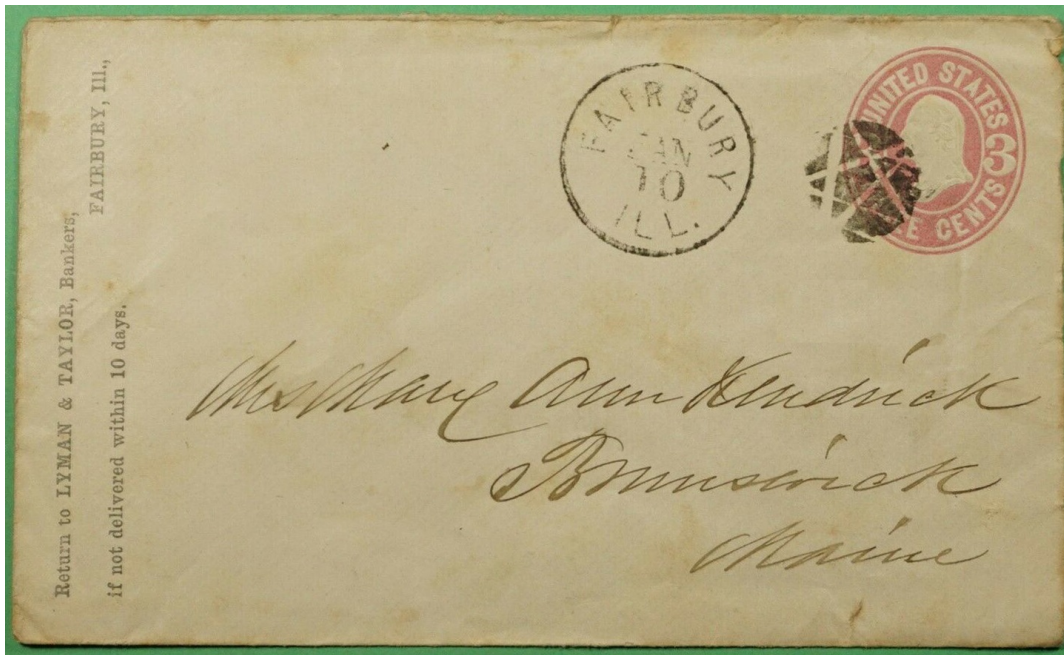 Return to LYMAN & TAYLOR, Bankers,
FAIRBURY, Ill.,
if not delivered within 10 days.
FAIRBURY
JAN
10
ILL.
UNITED STATES
3
CENTS
Mrs Mary Ann Kendrick
Brunswick
Maine